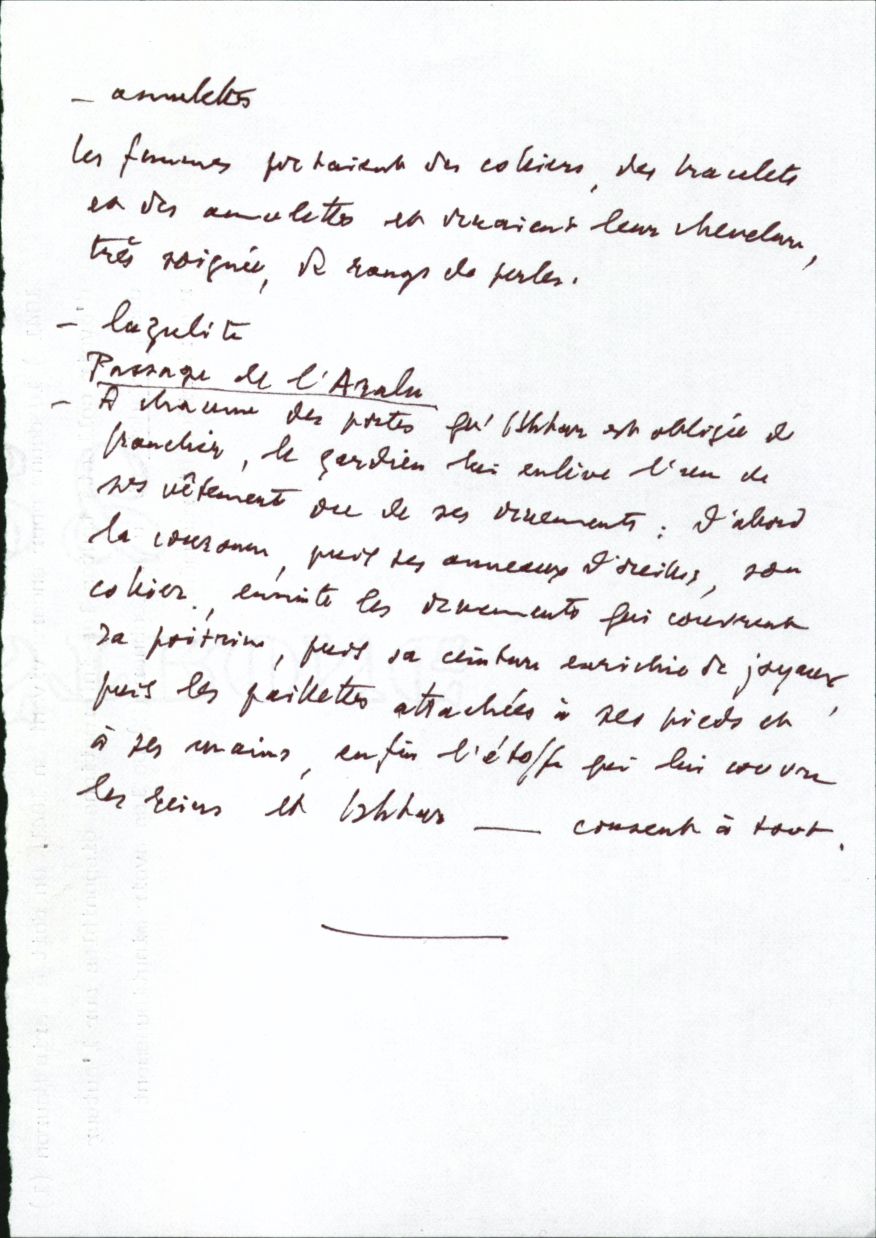 – amulettes
les femmes portaient des colliers, des bracelets
et des amulettes et ornaient leur chevelure,
très soignée, de rangs de perles.
– lazulite
Passage de l'Aralu
– A chacune des portes qu'Ishtar est obligée de
franchir, le gardien lui enlève l'un de
ses vêtements ou de ses ornements : d'abord
la couronne, puis ses anneaux d'oreilles, son
collier, ensuite les ornements qui couvrent
sa poitrine, puis sa ceinture enrichie de joyaux,
puis les paillettes attachées à ses pieds et
à ses mains, enfin l'étoffe qui lui couvre
les reins et Ishtar — consent à tout.